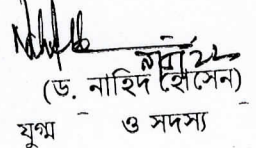 (ড. নাহিদ হোসেন)
যুগ্ম ও সদস্য